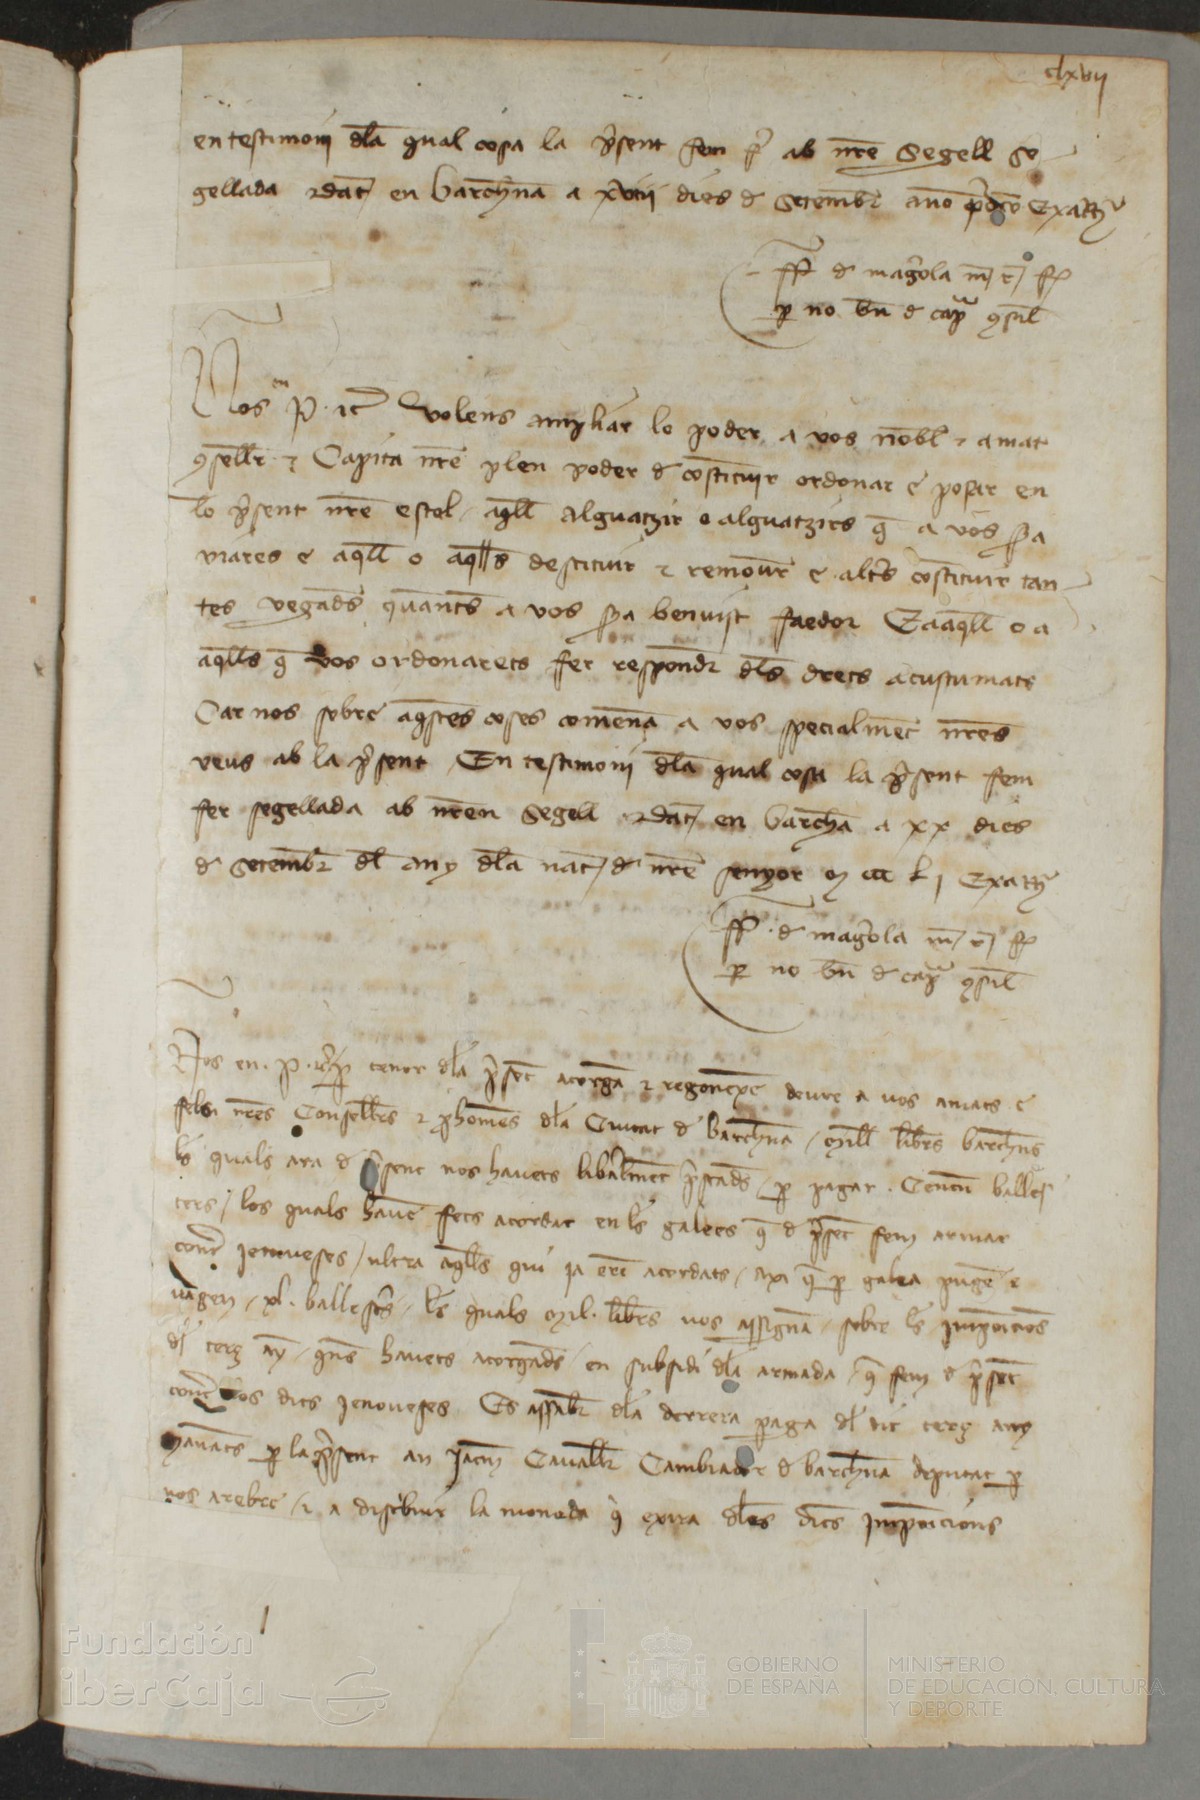 clxvii
en testimoni dla qual cosa la psent fem fr ab nre Segell Se
gellada Dat en barchna a xviii dies d setembr
ffr d magrola
p no
Nos en P. etc Volens ampliar lo poder a vos nobl e amat
gsellr e Capita nre plen poder d costituir ordonar e posar en
lo psent nre estol aqll alguatzir o alguatzirs q a vos sra
viares e aqll o aqlls destituir e remour e altrs costituir tan
tes vegads quants a vos sra benvist faedor E a aqll o a
aqlls q vos ordonarets fer respondr dls drets acustumats
Car nos sobre aqstes coses comena a vos specialmet nres
veus ab la psent En testimoni dla qual cosa la psent fem
fer segellada ab nre Segell Dat en barchna a xx dies
d setembr dl any dla nat d nre senyor
ffr d magrola
p no
Nos en P. tenor dla pset atorga e regonexe deure a vos amats e
feels nres Consellrs e phomes dla Ciutat d barchna mill libres barchns
ls quals ara d psent nos havets libalmet pstads p pagar balles
ters los quals have fets acordar en ls galees q d pset fem armar
contr jenoveses ultra aqlls qui ja ere acordats axi q p galea puge e
vagen xl. ballestrs ls quals mil libres vos assigna sobre ls imposicios
dl terç any qns havets atorgads en subsidi dla armada q fem d pset
contr los dits jenoveses Es assabr dla derrera paga dl dit terç any
manats p la psent an Jacm Cavallr Cambiador d barchna deputat p
vos a rebre e a distribuir la moneda q exira dles dits imposicions
Fundación
iberCaja
GOBIERNO
DE ESPAÑA
MINISTERIO
DE EDUCACIÓN, CULTURA
Y DEPORTE